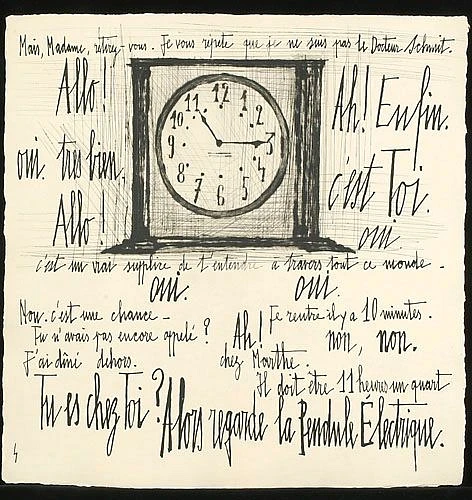 Mais, Madame, retirez-vous. Je vous repete que je ne suis pas le Docteur Schmit.
Allo!
oui. très bien,
Allo!
12
1
2
3
4
5
6
7
8
9
10
11
Ah! Enfin.
c'est Toi.
oui.
c'est un vrai supplice de t'entendre à travers tout ce monde -
oui. oui.
Non. c'est une chance -
Tu n'avais pas encore appelé?
J'ai dîné dehors.
Ah!
chez Marthe.
Je rentre il y a 10 minutes.
non, non.
Il doit être 11 heures un quart
Tu es chez Toi? Alors regarde la Pendule Électrique.
4